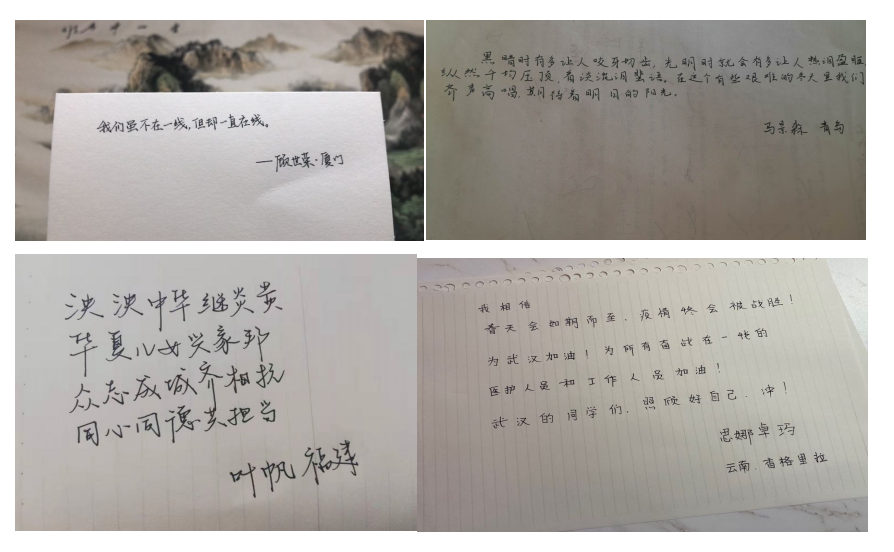 我们虽不在一线,但却一直在线。
——顾世荣·厦门
黑暗时有多让人咬牙切齿,光明时就会有多让人热泪盈眶
纵然千均压顶,有谈流泪。在这个有些艰难的冬天里我们
齐声高唱,期待着明日的阳光。
马景森 青岛
泱泱中华继炎黄
华夏儿女兴家邦
众志成城齐相抗
同心同德共担当
叶帆 福建
我相信
春天会如期而至,疫情终会被战胜!
为武汉加油!为所有奋战在一线的
医护人员和工作人员加油!
武汉的同学们,照顾好自己,冲!
思娜卓玛
云南·香格里拉